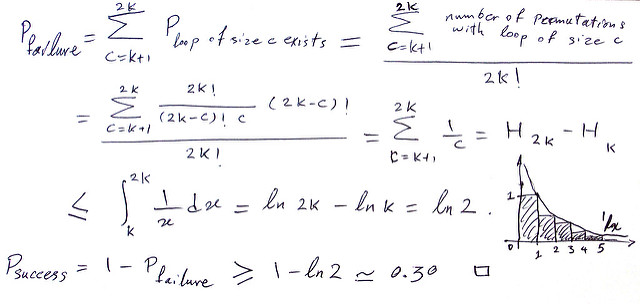 P_failure = Σ_{c=k+1}^{2k} P_loop of size c exists = Σ_{c=k+1}^{2k} number of permutations with loop of size c / 2k!
= Σ_{c=k+1}^{2k} 2k!/((2k-c)! c) (2k-c)! / 2k! = Σ_{c=k+1}^{2k} 1/c = H_2k - H_k
≤ ∫_k^{2k} 1/x dx = ln 2k - ln k = ln 2.
1 1/x
0 1 2 3 4 5
P_success = 1 - P_failure ≥ 1 - ln 2 ≃ 0.30 □